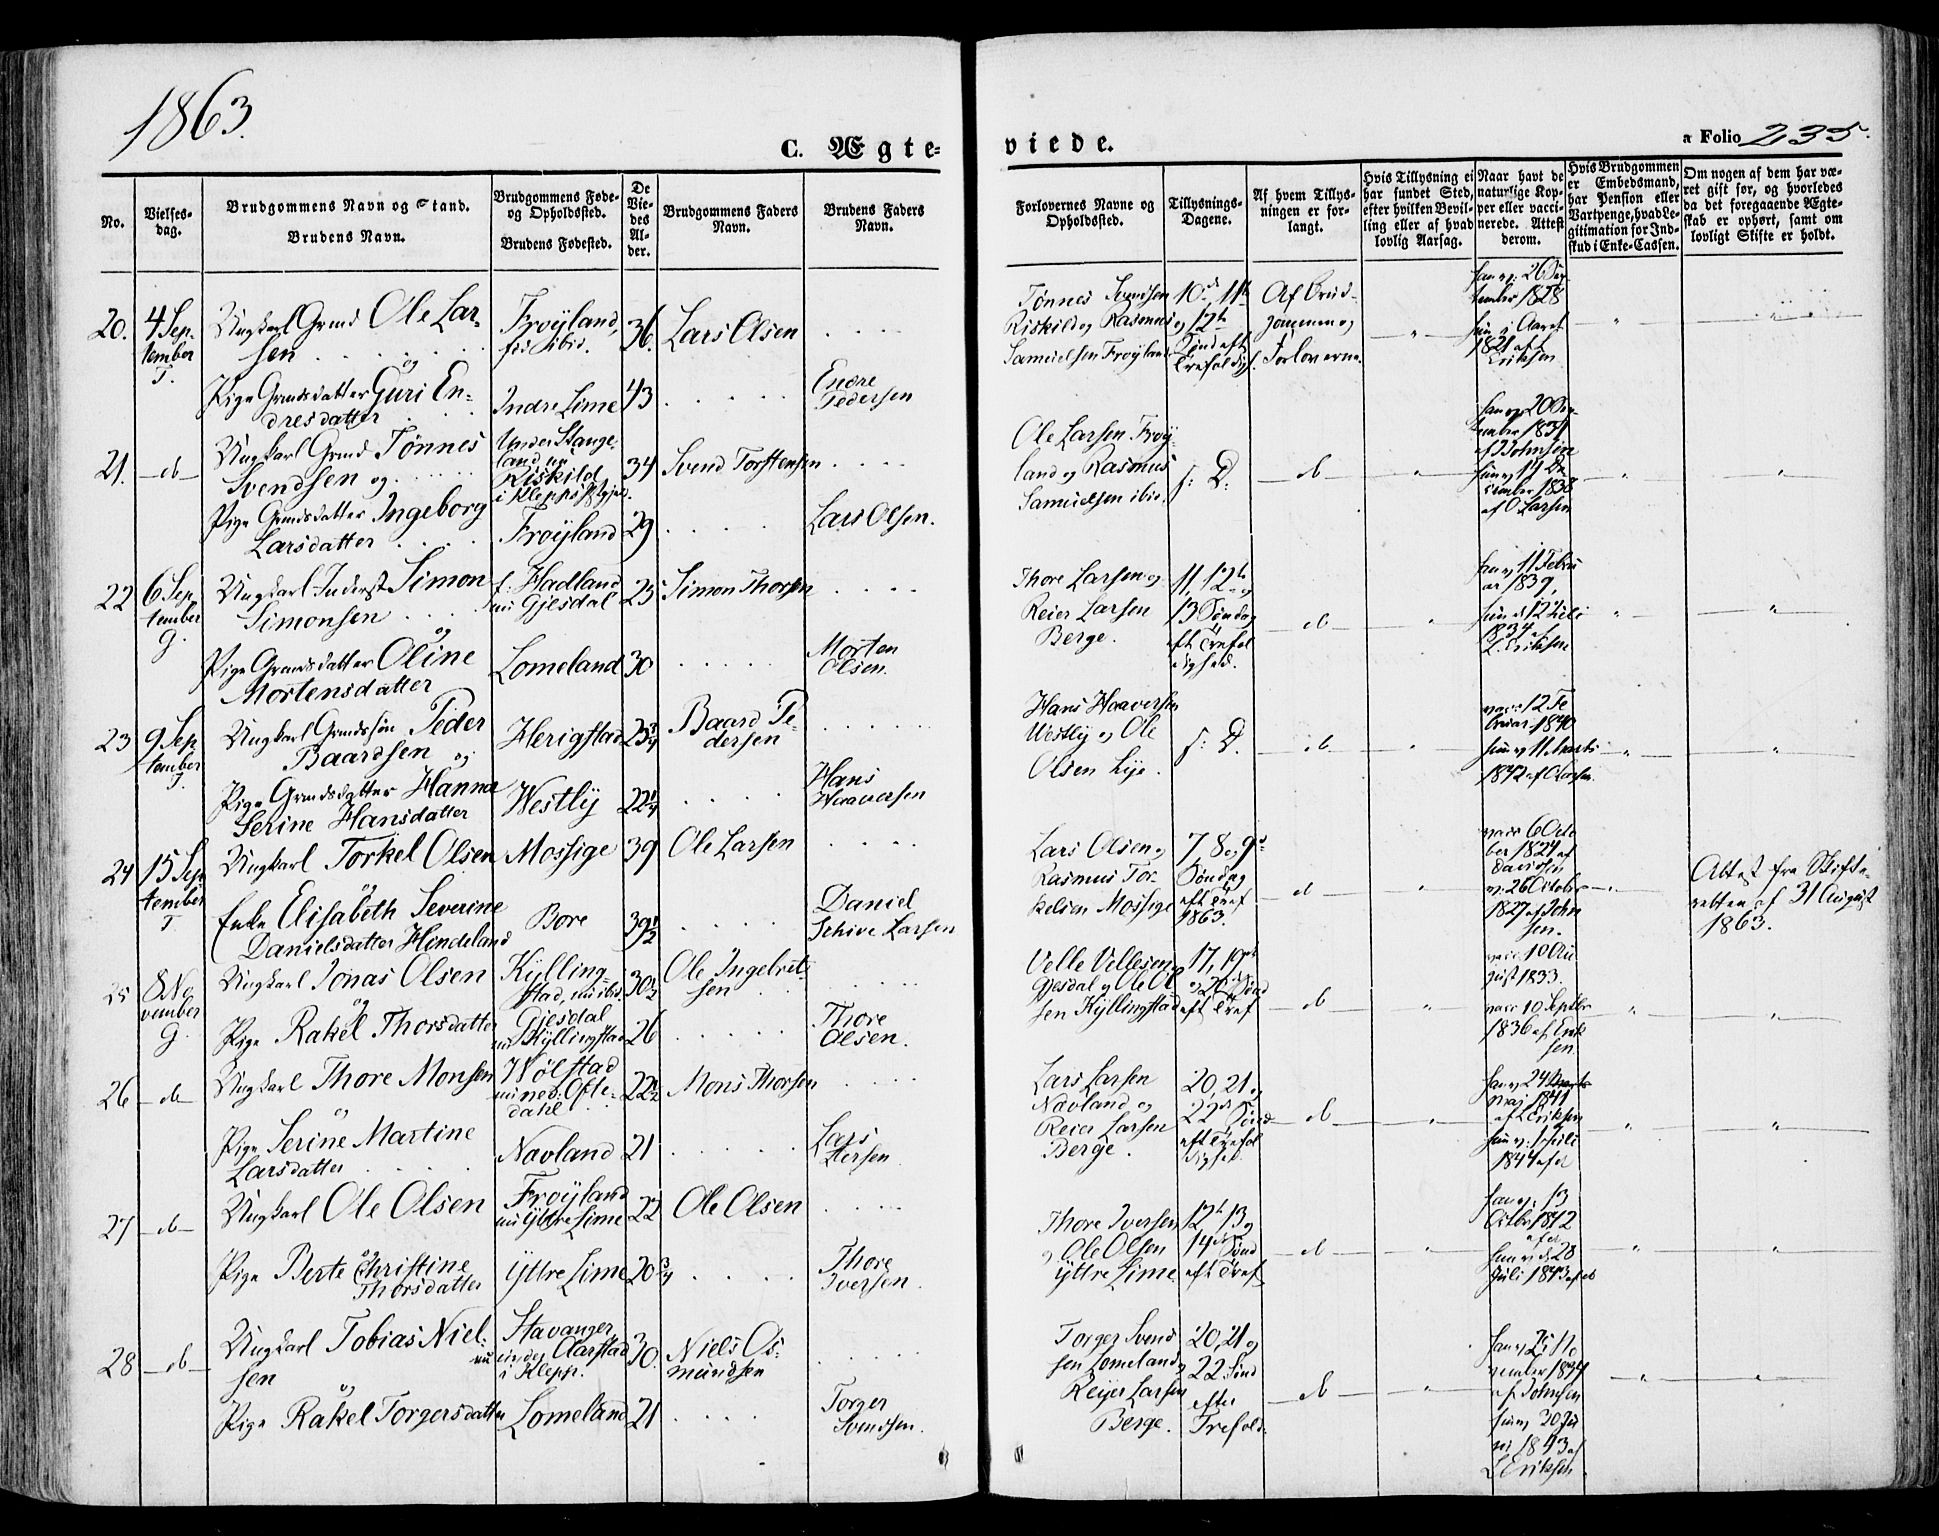 1863.
C. Ægte-
viede.
a Folio 235.
No.
Vielses-
dag.
Brudgommens Navn og Stand.
Brudens Navn.
Brudgommens Føde-
og Opholdssted.
Brudens Fødested.
De
Vie-
des
Al-
der.
Brudgommens Faders
Navn.
Brudens Faders
Navn.
Forlovernes Navne og
Opholdssted.
Tillysnings-
Dagene.
Af hvem Tillys-
ningen er for-
langt.
Hvis Tillysning ei
har fundet Sted,
efter hvilken Bevil-
ling eller af hvad
lovlig Aarsag.
Naar havt de
naturlige Kop-
per eller vacci-
nerede. Attest
derom.
Hvis Brudgommen
er Embedsmand,
har Pension eller
Vartpenge, hvad Le-
gitimation for Ind-
skud i Enke-Cassen.
Om nogen af dem har væ-
ret gift før, og hvorledes
da det foregaaende Ægte-
skab er ophørt, samt om
lovligt Skifte er holdt.
20.
4 Sep-
tember
T.
Ungkarl Grmd Ole Lar-
sen
og
Pige Grmdsdatter Guri En-
dresdatter
Frøyland,
ibid.
Indre Lime
36.
43
Lars Olsen
Endre
Pedersen
Tønnes Svendsen
Riskild og Rasmus
Samuelsen Frøyland
10de, 11te
og 12te
Sønd eft
Trefoldigh.
Af Brud-
gommen og
Forloverne
han v: 26 Sep-
tember 1828
hun i Aaret
1821 af
Eriksen
21.
-d-
Ungkarl Grmd Tønnes
Svendsen og
Pige Grmdsdatter Ingeborg
Larsdatter
Under Stange-
land nu
Riskild
i Klepps Pstgjæld.
Frøyland
34
29
Svend Torstensen
Lars Olsen.
Ole Larsen Frøy-
land og Rasmus
Samuelsen ibid.
s: D:
-d-
han v 20 Sep-
tember 1831
af Johnsen
hun v 14 De-
cember 1838
af O Larsen
22
6 Sep-
tember
G.
Ungkarl Inderst Simon
Simonsen
og
Pige Grmdsdatter Oline
Mortensdatter
f. Hadland
nu Gjesdal
Lomeland
25
30
Simon Thorsen
Morten
Olsen.
Thore Larsen og
Reier Larsen
Berge.
11, 12te og
13 Søndag
eft Trefol-
dighed.
-d-
han v 11 Febru-
ar 1839,
hun d 12 Juli
1834 af
L. Eriksen
23
9 Sep-
tember
T.
Ungkarl Grmdssøn Peder
Baardsen og
Pige Grmdsdatter Hanna
Serine Hansdatter
Herigstad
Westly
23¾
22¼
Baard Pe-
dersen
Hans
Haaversen
Hans Haaversen
Westly og Ole
Olsen Lye.
s: D.
-d-
vacc 12 Fe-
bruar 1840
hun v 11 Marts
1842 af O Larsen.
24
15 Sep-
tember
T
Ungkarl Torkel Olsen
og
Enke Elisabeth Severine
Danielsdatter Hindeland
Mossige
Bore
39
39½
Ole Larsen
Daniel
Schive Larsen
Lars Olsen og
Rasmus Tor-
kelsen Mossige
7, 8 og 9de
Søndag
eft Tref
1863.
-d-
vacc 6 Octo-
ber 1824 af
Davidsen
v: 26 October
1827 af John-
sen.
Attest fra Skifte-
retten af 31 August
1863.
25
8 No-
vember
G.
Ungkarl Jonas Olsen
og
Pige Rakel Thorsdatter
Kylling-
stad, nu ibid
Gjesdal
nu Kyllingstad
30½
26
Ole Ingebret-
sen
Thore
Olsen.
Velle Vellesen
Gjesdal og Ole Ol-
sen Kyllingstad
17, 19de
og 20 Sønd
eft Tref
-d-
vacc 10 Au-
gust 1833.
vacc 10 Septbr
1836 af Erik-
sen.
26
-d-
Ungkarl Thore Monsen
og
Pige Serine Martine
Larsdatter
Wølstad
nu ned: Ofte-
dahl
Navland
22½
21
Mons Thorsen
Lars
Larsen
Lars Larsen
Navland og
Reier Larsen
Berge.
20, 21 og
22de Sønd
eft Trefol-
dighed
-d-
han v 24
Mai 1841
af L Eriksen
hun v: 1 Juli
1844 af d
27
-d-
Ungkarl Ole Olsen
og
Pige Berte Christine
Thorsdatter
Frøyland
nu Yttre Lime
Yttre Lime
22
20¾
Ole Olsen
Thore
Iversen.
Thore Iversen
og Ole Olsen
Yttre Lime
12te, 13 og
14de Sønd
eft Tref
-d-
han v: 13
Octbr 1842
af d
hun v d 28
Juli 1843 af d
28
-d-
Ungkarl Tobias Niel-
sen
og
Pige Rakel Torgersdatter
Stavanger,
nu inder Aarstad
i Klepp.
Lomeland
30.
21
Niels Os-
mundsen
Torger
Svendsen.
Torger Svend-
sen Lomeland og
Reijer Larsen
Berge.
20, 21 og
22 Sønd
efter
Trefold.
-d-
han v 25 No-
vember 1834
af Johnsen
hun v 30 Ju-
ni 1843 af
L Eriksen